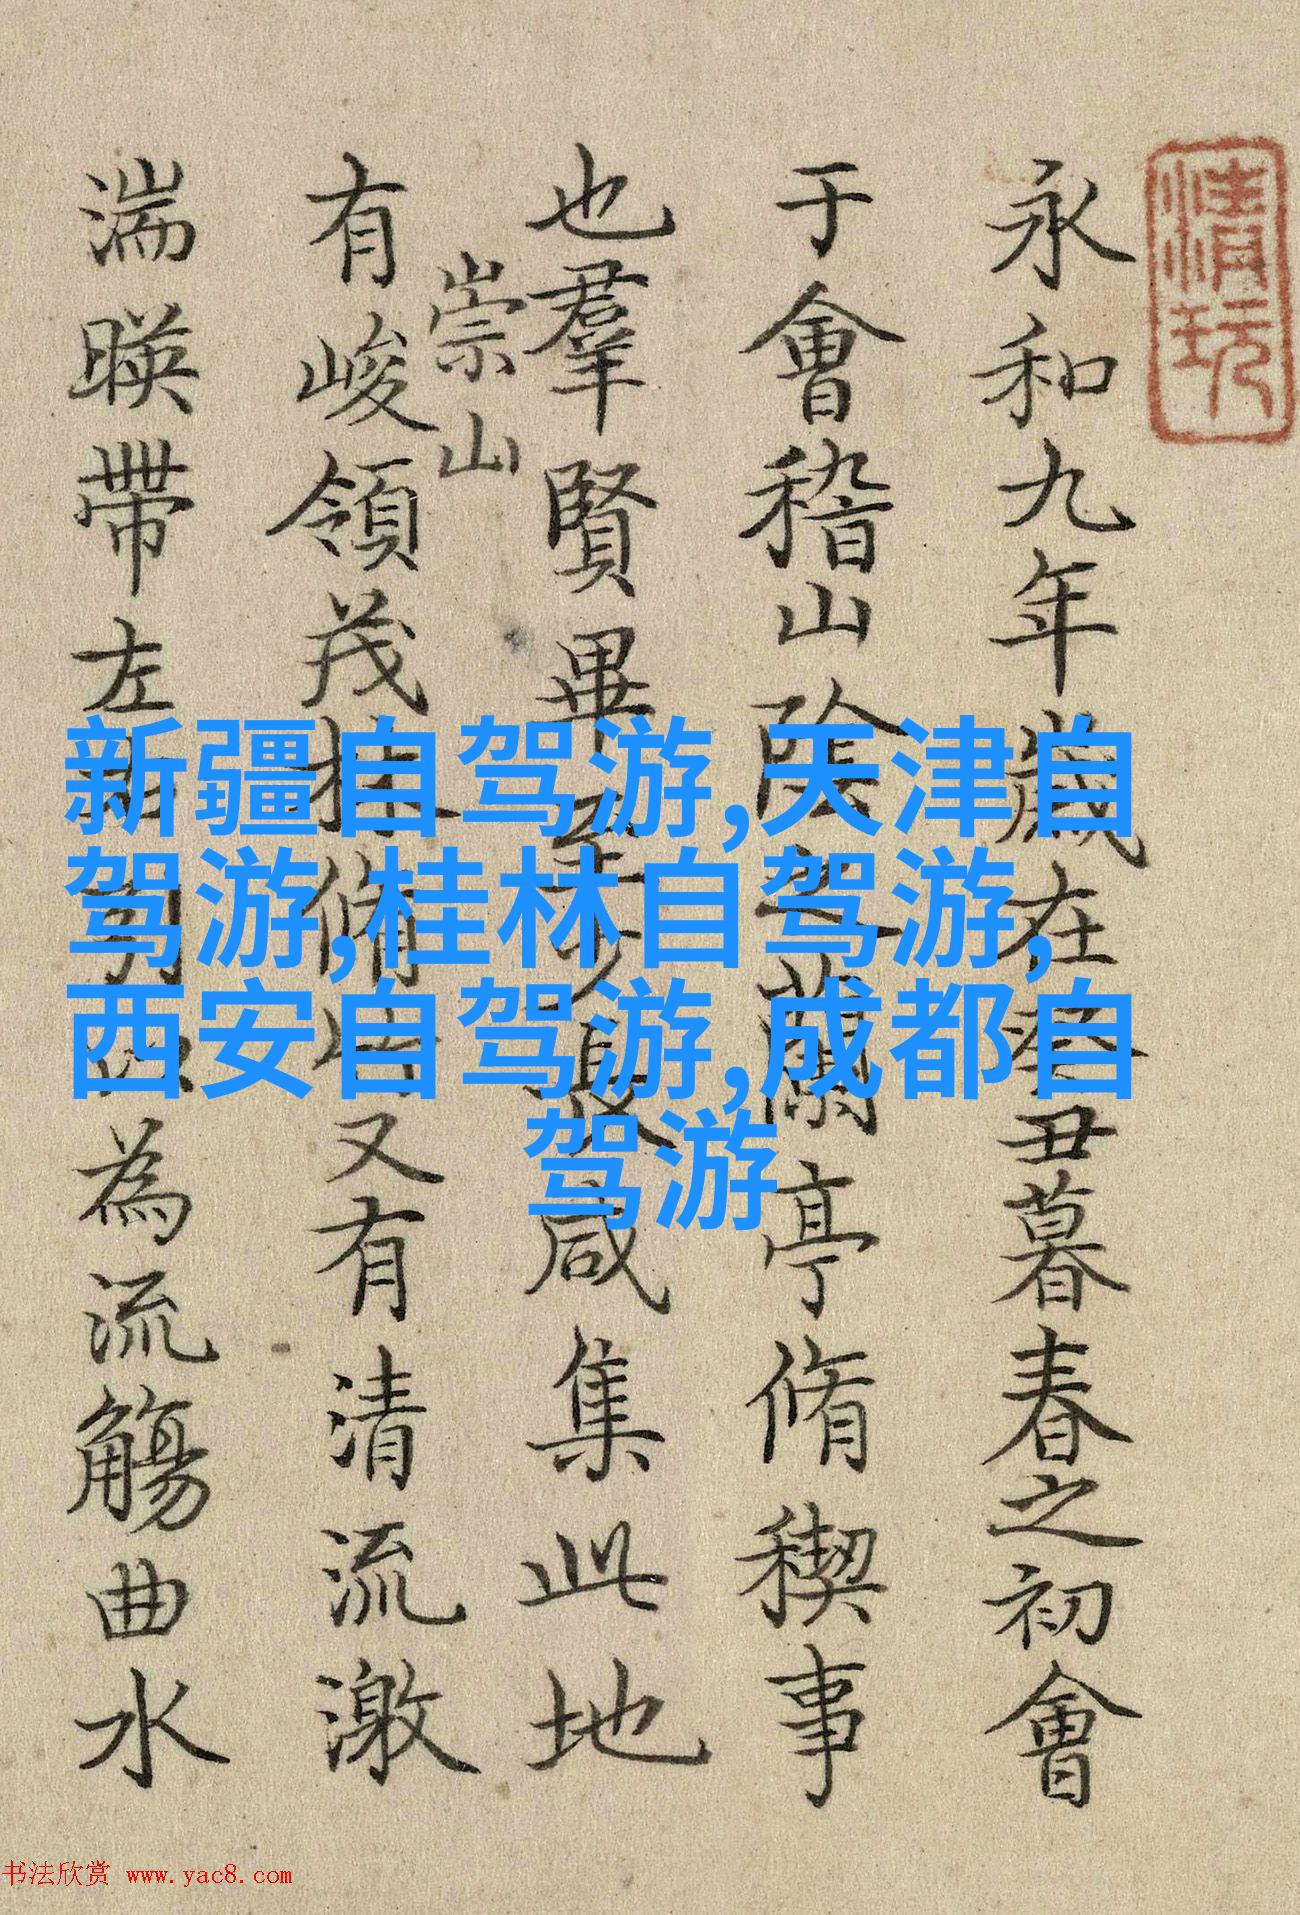 清玩
永和九年歲在癸丑暮春之初會
于會稽山陰之蘭亭脩稧事
也羣賢畢至少長咸集此地
崇山
有峻領茂林脩竹又有清流激
湍暎帶左為流觴曲水
新疆自驾游,天津自
驾游,桂林自驾游,
西安自驾游,成都自
驾游
书法欣赏 www.yac8.com